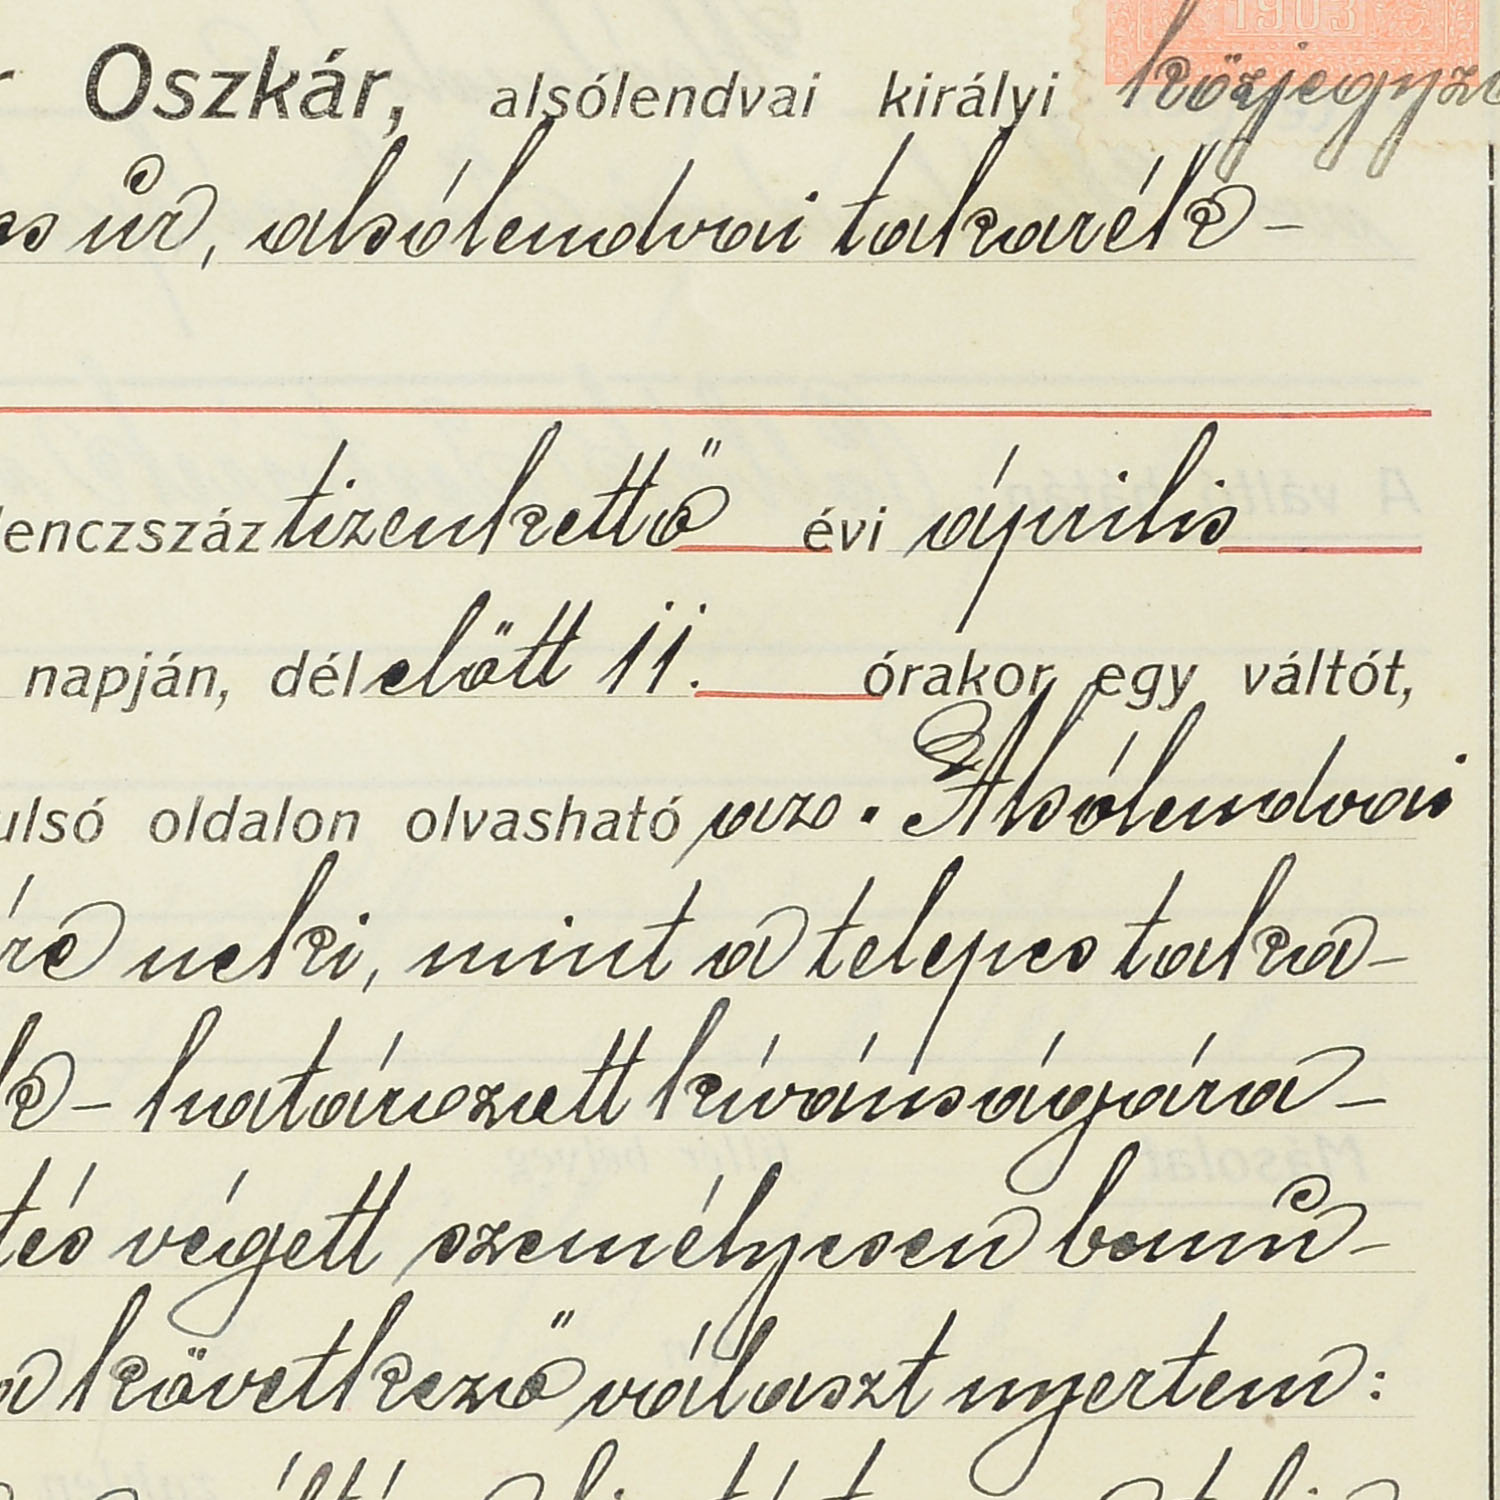 1903
Oszkár, alsólendvai királyi közjegyző
úr, alsólendvai takarék-
lenczszáz tizenkettő évi április
napján, délelőtt 11. órakor egy váltót,
ulsó oldalon olvasható az Alsólendvai
re neki, mint a telepes taka-
k- határozott kívánságára-
tés végett személyesen bemu-
a következő választ nyertem: